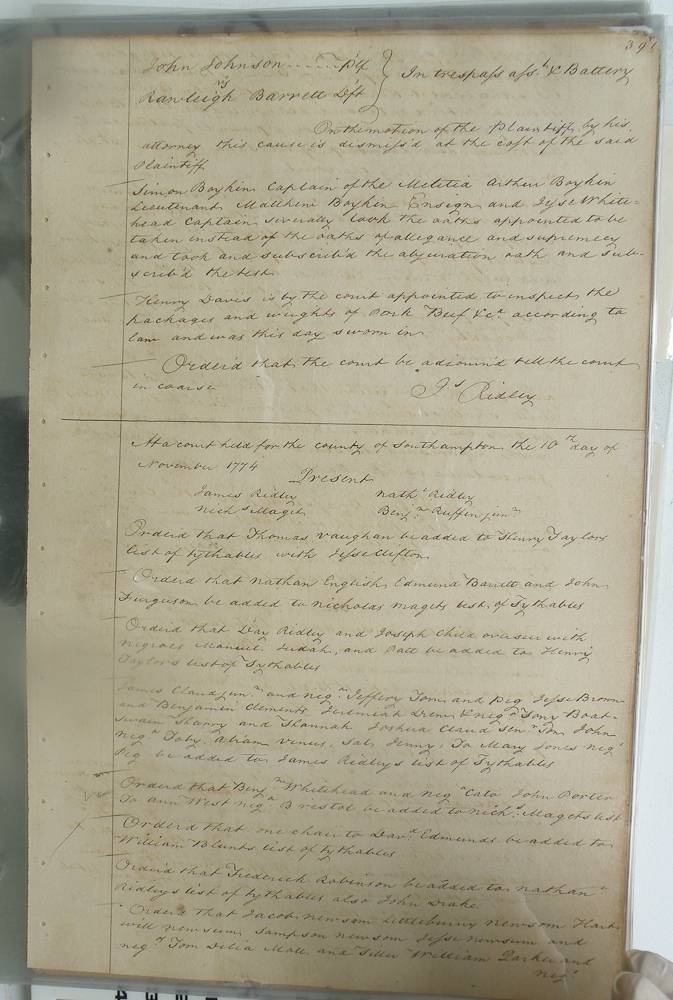 39
John Johnson Plf
vs
Rawleigh Barrett Deft
In trespass asst. & Battery
On the motion of the Plaintiff by his
attorney this cause is dismiss'd at the cost of the said
Plaintiff
Simon Boykin Captain of the Meletia Arthur Boykin
Lieutenant Matthew Boykin Ensign and Jesse White=
head Captain severally took the oaths appointed to be
taken instead of the oaths of allegance and supremecy
and took and subscrib'd the abjuration oath and sub-
scrib'd the test.
Henry Davis is by the court appointed to inspect the
packages and weights of Pork Beef &ca according to
law and was this day sworn in
Order'd that the court be adjourn'd till the court
in coarse
Js Ridley
At a court held for the county of Southampton the 10th day of
November 1774
Present
James Ridley Nathl Ridley
Nichs Maget Benjn Ruffin junr
Orderd that Thomas Vaughan be added to Henry Taylors
list of tythables with Jesse Clifton
Orderd that Nathan English Edmund Barrett and John
Furguson be added to Nicholas Magets list of Tythables
Orderd that Day Ridley and Joseph Child overseer with
Negroes Manuel Judah, and Patt be added to Henry
Taylors list of Tythables
James Claud junr and negrs Jeffery Tom and Peg Jesse Brown
and Benjamin Clements Jeremiah Drew & negs Tony Boat-
swain and Hannah Joshua Claud Senr John
negs Toby Abram Venus, Sal, Jenny, To Mary Jones neg
Peg be added to James Ridley's list of Tythables
Orderd that Benjn Whitehead and neg Cato John Porter
To Ann West neg Brestol be added to Nichs Magets list
Orderd that one chair to Davd Edmunds be added to
William Blunts list of tythables
Order'd that Frederick Robinson be added to Nathanl
Ridley's list of tythables also John Drake
Orderd that Jacob Newsom Littleburry Newsom Hart
will newsum Sampson newsom Jesse newsum and
negs Tom Delia Moll and William Parker and
negs